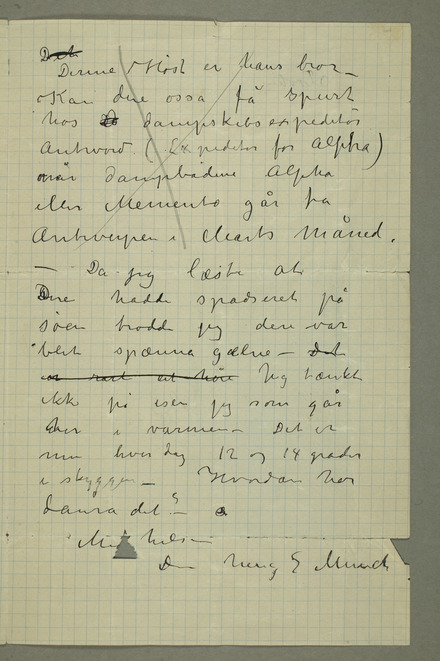 Denne Høst er hans bror –
Kan du ossa få spurt
hos dampskibsexpeditør
Antword. (Expeditør for Alpha)
når dampbådene Alpha
eller Memento går fra
Antwerpen i Marts Måned.
– Da jeg læste at
Dere hadde spadseret på
søen trodde jeg dere var
blet spænna gælne – Det
er rart at höre Jeg tænkte
ikke på isen jeg som går
her i varmen – Det er
nu hver dag 12 og 14 grader
i skyggen – Hvordan har
Laura det? –
Med hilsen
Din heng E Munch